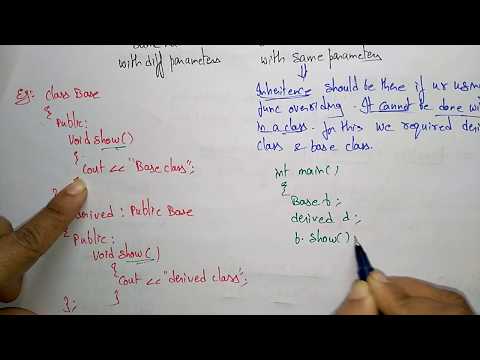 with diff parameters
with same parameters
Eg:- class Base
{
Public:
void show()
{
cout << "Base class";
derived : Public Base
{
Public:
void show()
{
cout << "derived class";
}
};
Inheritence should be there if ur using
func overiding. It cannot be done
in a class. for this we required
class & base class.
int main()
{
Base b;
derived d;
b. show();